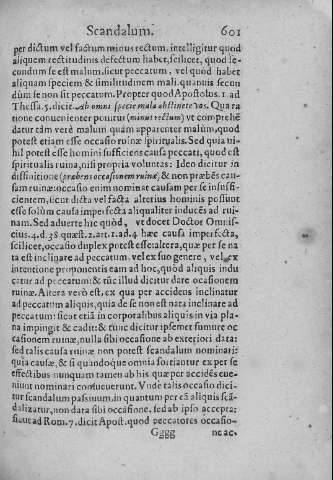 Scandalum. 601
per dictum vel factum minus rectum, intelligitur quod
aliquem rectitudinis defectum habet, scilicet, quod se-
cundum se est malum, sicut peccatum, vel quod habet
aliquam speciem & similitudinem mali, quamuis secun
dùm se non sit peccatum. Propter quod Apostolus. 1. ad
Thessa. 5. dicit. Ab omni specie mala abstinete vos. Qua ra
tione conuenienter ponitur (minus rectum) vt comprehē
datur tàm verè malum quàm apparenter malùm, quod
potest etiam esse occasio ruinæ spiritualis. Sed quia ni-
hil potest esse homini sufficiens causa peccati, quod est
spiritualis ruina, nisi propria voluntas: Ideo dicitur in
diffinitione (præbens occasionem ruinæ, & non præbēs cau-
sam ruinæ: occasio enim nominat causam per se insuffi-
cientem, sicut dicta vel facta alterius hominis possunt
esse solùm causa imperfecta aliqualiter inducēs ad rui-
nam. Sed aduerte hîc quòd, vt docet Doctor
4.d.38. quæst.2. art.1. ad.4 hæc causa imperfecta,
scilicet, occasio duplex potest esse: altera, quæ per se na
ta est inclinare ad peccatum, vel ex suo genere, vel, ex
intentione proponentis eam ad hoc, quòd aliquis indu
catur ad peccatum: & tūc illud dicitur dare occasionem
ruinæ. Altera verò est, ex qua per accidens inclinatur
ad peccatum aliquis, quia de se non est nata inclinare ad
peccatum: sicut etiā in corporalibus aliquis in via pla-
na impingit & cadit: & tunc dicitur ipsemet sumere oc
casionem ruinæ, nulla sibi occasione ab exteriori data:
sed talis causa ruinæ non potest scandalum nominari:
quia causæ, & si quandoque omnia sortiantur ex per se
effectibus nunquam tamen ab his quæ per accidēs eue-
niunt nominari consueuerunt. Vnde talis occasio dici-
tur scandalum passiuum, in quantum per eā aliquis scā-
dalizatur, non data sibi occasione, sed ab ipso accepta:
sicut ad Rom. 7. dicit Apost. quod peccatores occasio-
Gggg ne ac-